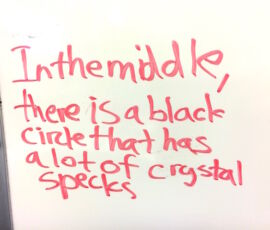 In the middle,
there is a black
circle that has
a lot of crystal
specks